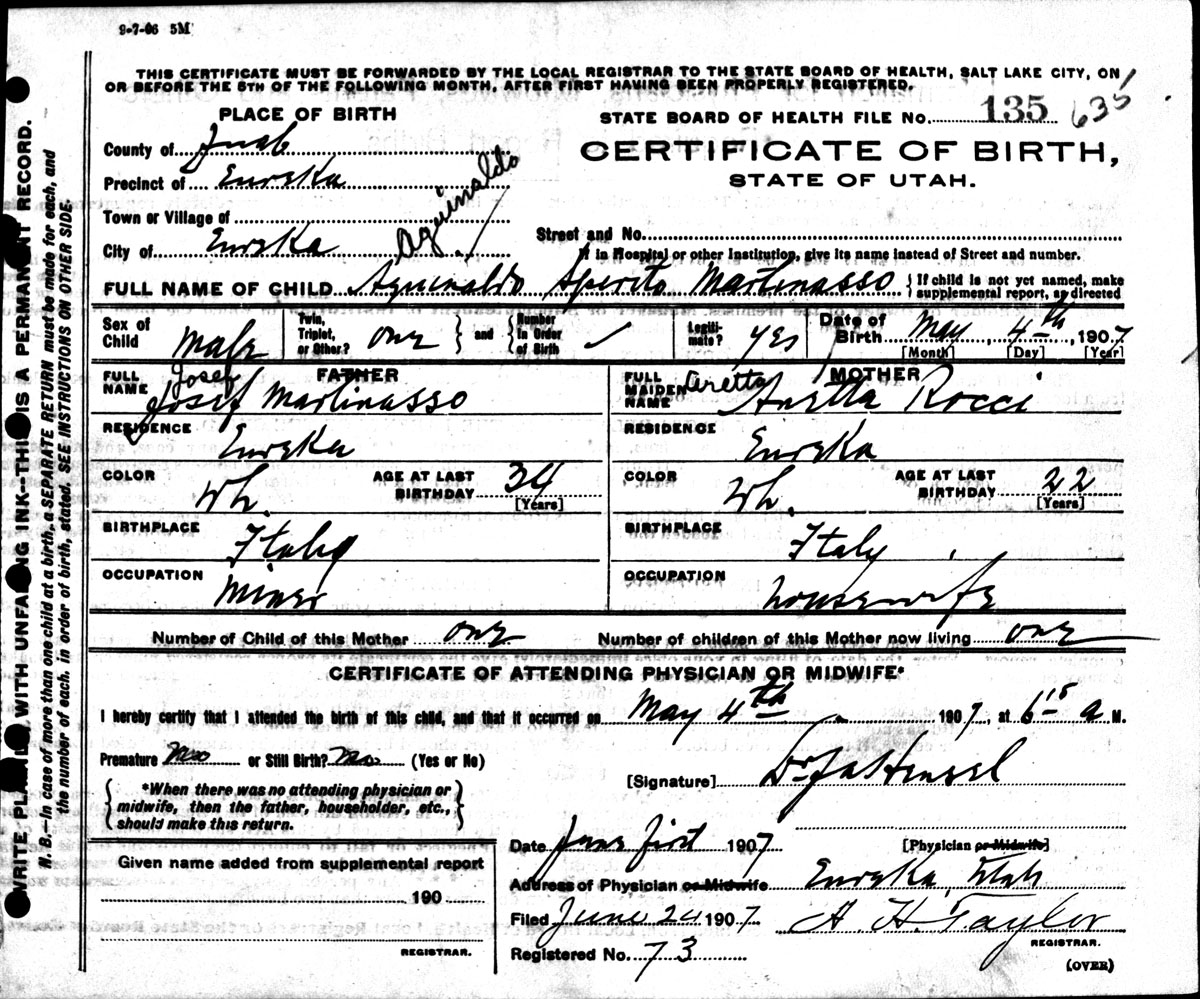 9-7-06 5M
THIS CERTIFICATE MUST BE FORWARDED BY THE LOCAL REGISTRAR TO THE STATE BOARD OF HEALTH, SALT LAKE CITY, ON
OR BEFORE THE 5TH OF THE FOLLOWING MONTH, AFTER FIRST HAVING BEEN PROPERLY REGISTERED.
PLACE OF BIRTH
STATE BOARD OF HEALTH FILE NO. 135 635
County of Juab
CERTIFICATE OF BIRTH,
STATE OF UTAH.
Precinct of Eureka
Town or Village of
Aguinaldo
City of Eureka
Street and No.
If in Hospital or other Institution, give its name instead of Street and number.
FULL NAME OF CHILD Aguinaldo Martinasso { If child is not yet named, make
supplemental report, as directed
Sex of Child Male
Twin, Triplet, or Other? One } and { Number in Order of Birth ✓
Legitimate? yes
Date of Birth May 4th, 1907
[Month] [Day] [Year]
FATHER
FULL NAME Josef
Josef Martinasso
RESIDENCE Eureka
COLOR Wh. AGE AT LAST BIRTHDAY 34
[Years]
BIRTHPLACE Italy
OCCUPATION Miner
MOTHER
FULL MAIDEN NAME Rocci
RESIDENCE Eureka
COLOR Wh. AGE AT LAST BIRTHDAY 22
[Years]
BIRTHPLACE Italy
OCCUPATION Housewife
Number of Child of this Mother one Number of children of this Mother now living one
CERTIFICATE OF ATTENDING PHYSICIAN OR MIDWIFE*
I hereby certify that I attended the birth of this child, and that it occurred on May 4th 1907, at 6 15 a M.
Premature No or Still Birth? No (Yes or No)
[Signature] Dr Hensel
{ *When there was no attending physician or
midwife, then the father, householder, etc.,
should make this return. }
Date June first 1907 [Physician or Midwife]
Given name added from supplemental report
190
REGISTRAR.
Address of Physician or Midwife Eureka, Utah
Filed June 24 1907 H. H. Taylor
REGISTRAR.
Registered No. 73
(OVER)
WRITE PLAINLY WITH UNFADING INK--THIS IS A PERMANENT RECORD.
N. B.—In case of more than one child at a birth, a SEPARATE RETURN must be made for each, and
the number of each, in order of birth, stated. SEE INSTRUCTIONS ON OTHER SIDE.